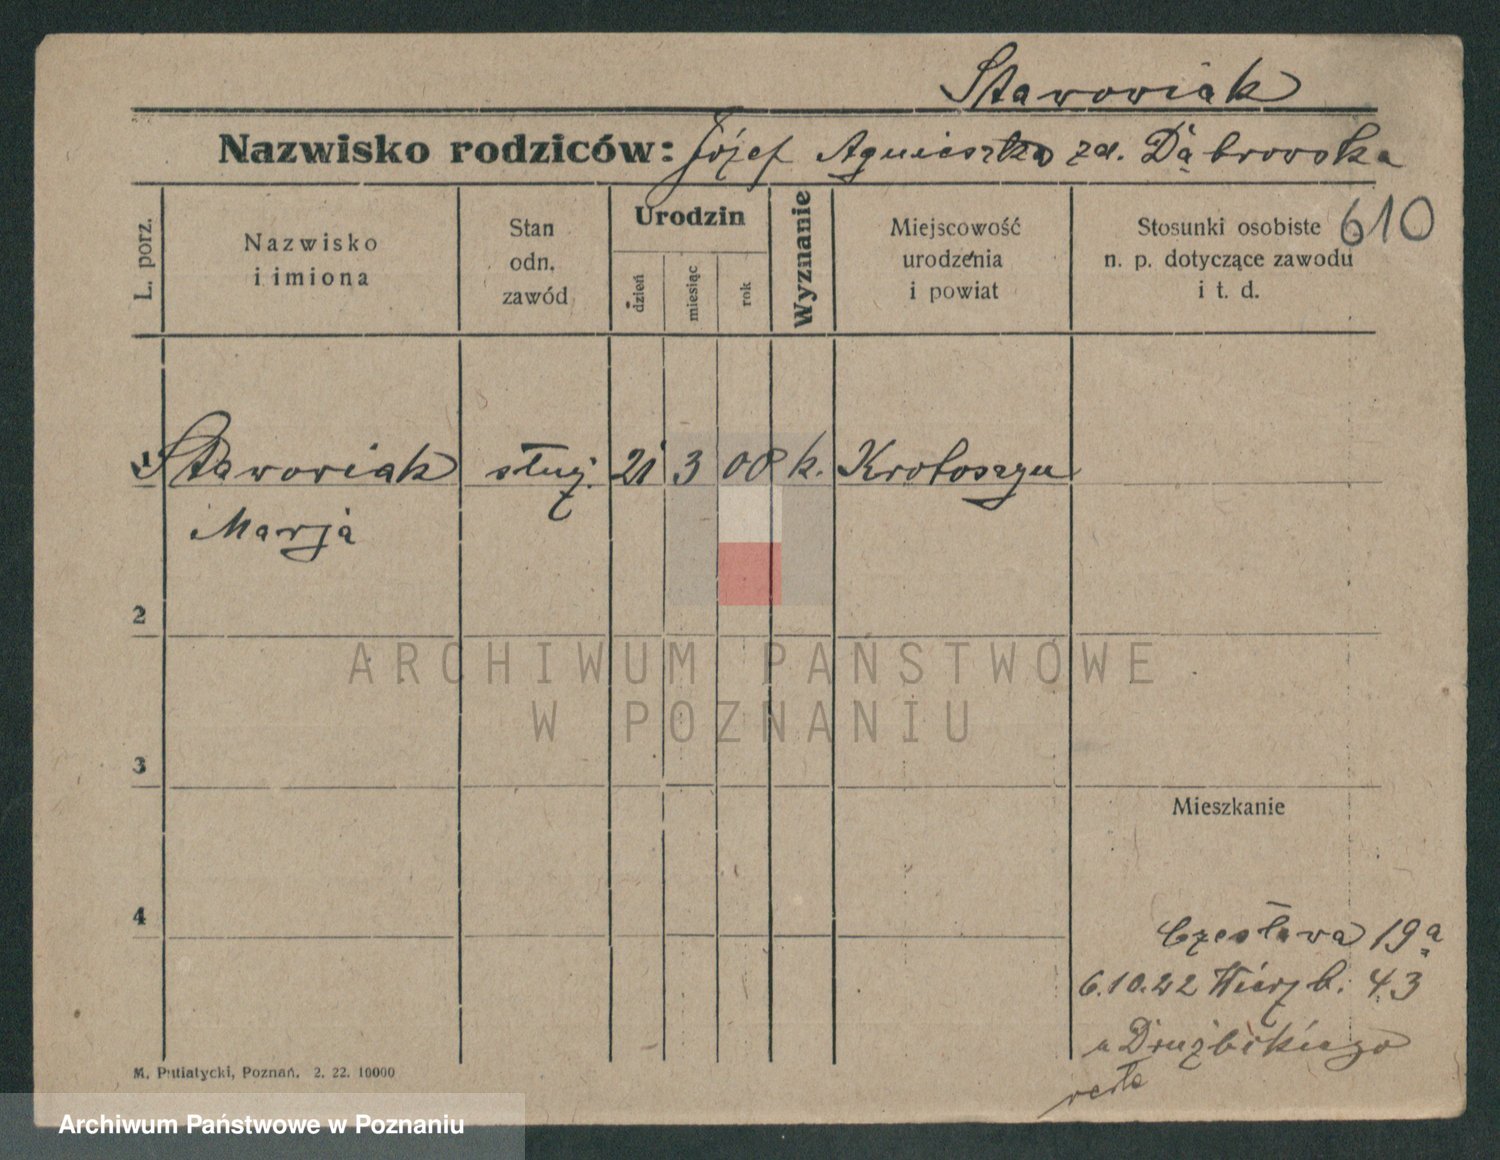 Stawowiak
Nazwisko rodziców: Józef Agnieszka zd. Dąbrowska
610
L. porz.
Nazwisko
i imiona
Stan
odn.
zawód
Urodzin
dzień
miesiąc
rok
Wyznanie
Miejscowość
urodzenia
i powiat
Stosunki osobiste
n. p. dotyczące zawodu
i t. d.
1 Stawowiak służ. 21 3 00 k. Krotoszyn
Marja
2
ARCHIWUM PAŃSTWOWE
W POZNANIU
3
Mieszkanie
4
Czesława 19a
6.10.22 Wierzb. 43
u Drużbikiego
M. Putiatycki, Poznań. 2. 22. 10000
Archiwum Państwowe w Poznaniu